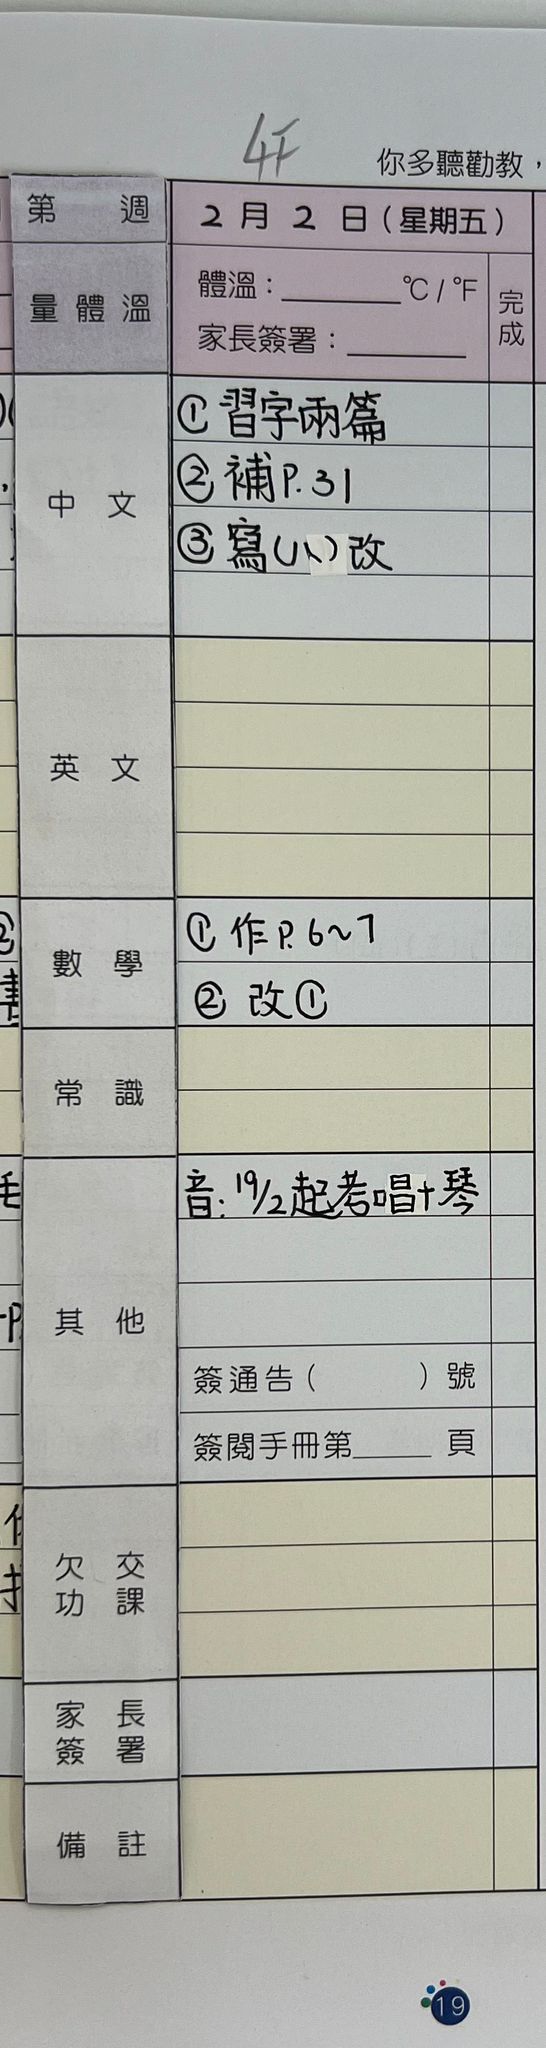 你多聽勸教，
第 週
2月2日(星期五)
量體溫
體溫：______℃/℉
家長簽署：______
完成
中文
① 習字兩篇
② 補P.31
③ 寫(八)改
英文
數學
① 作P.6~7
② 改①
常識
其他
音: 19/2起考唱+琴
簽通告( )號
簽閱手冊第____頁
欠交功課
家長簽署
備註
19